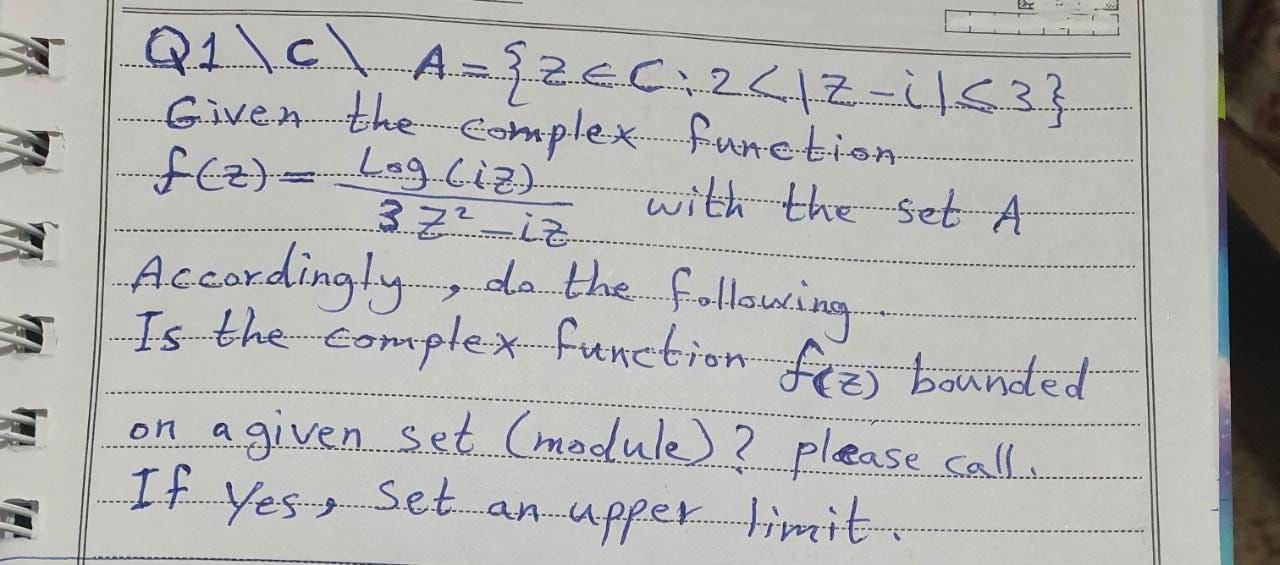 Q1\C\ A={Z∈C:2<|Z-i|≤3}
Given the complex function
f(z)= Log(iz) / 3Z²-iZ with the set A
Accordingly, do the following.
Is the complex function f(z) bounded
on a given set (module)? please call.
If Yes, Set an upper limit.